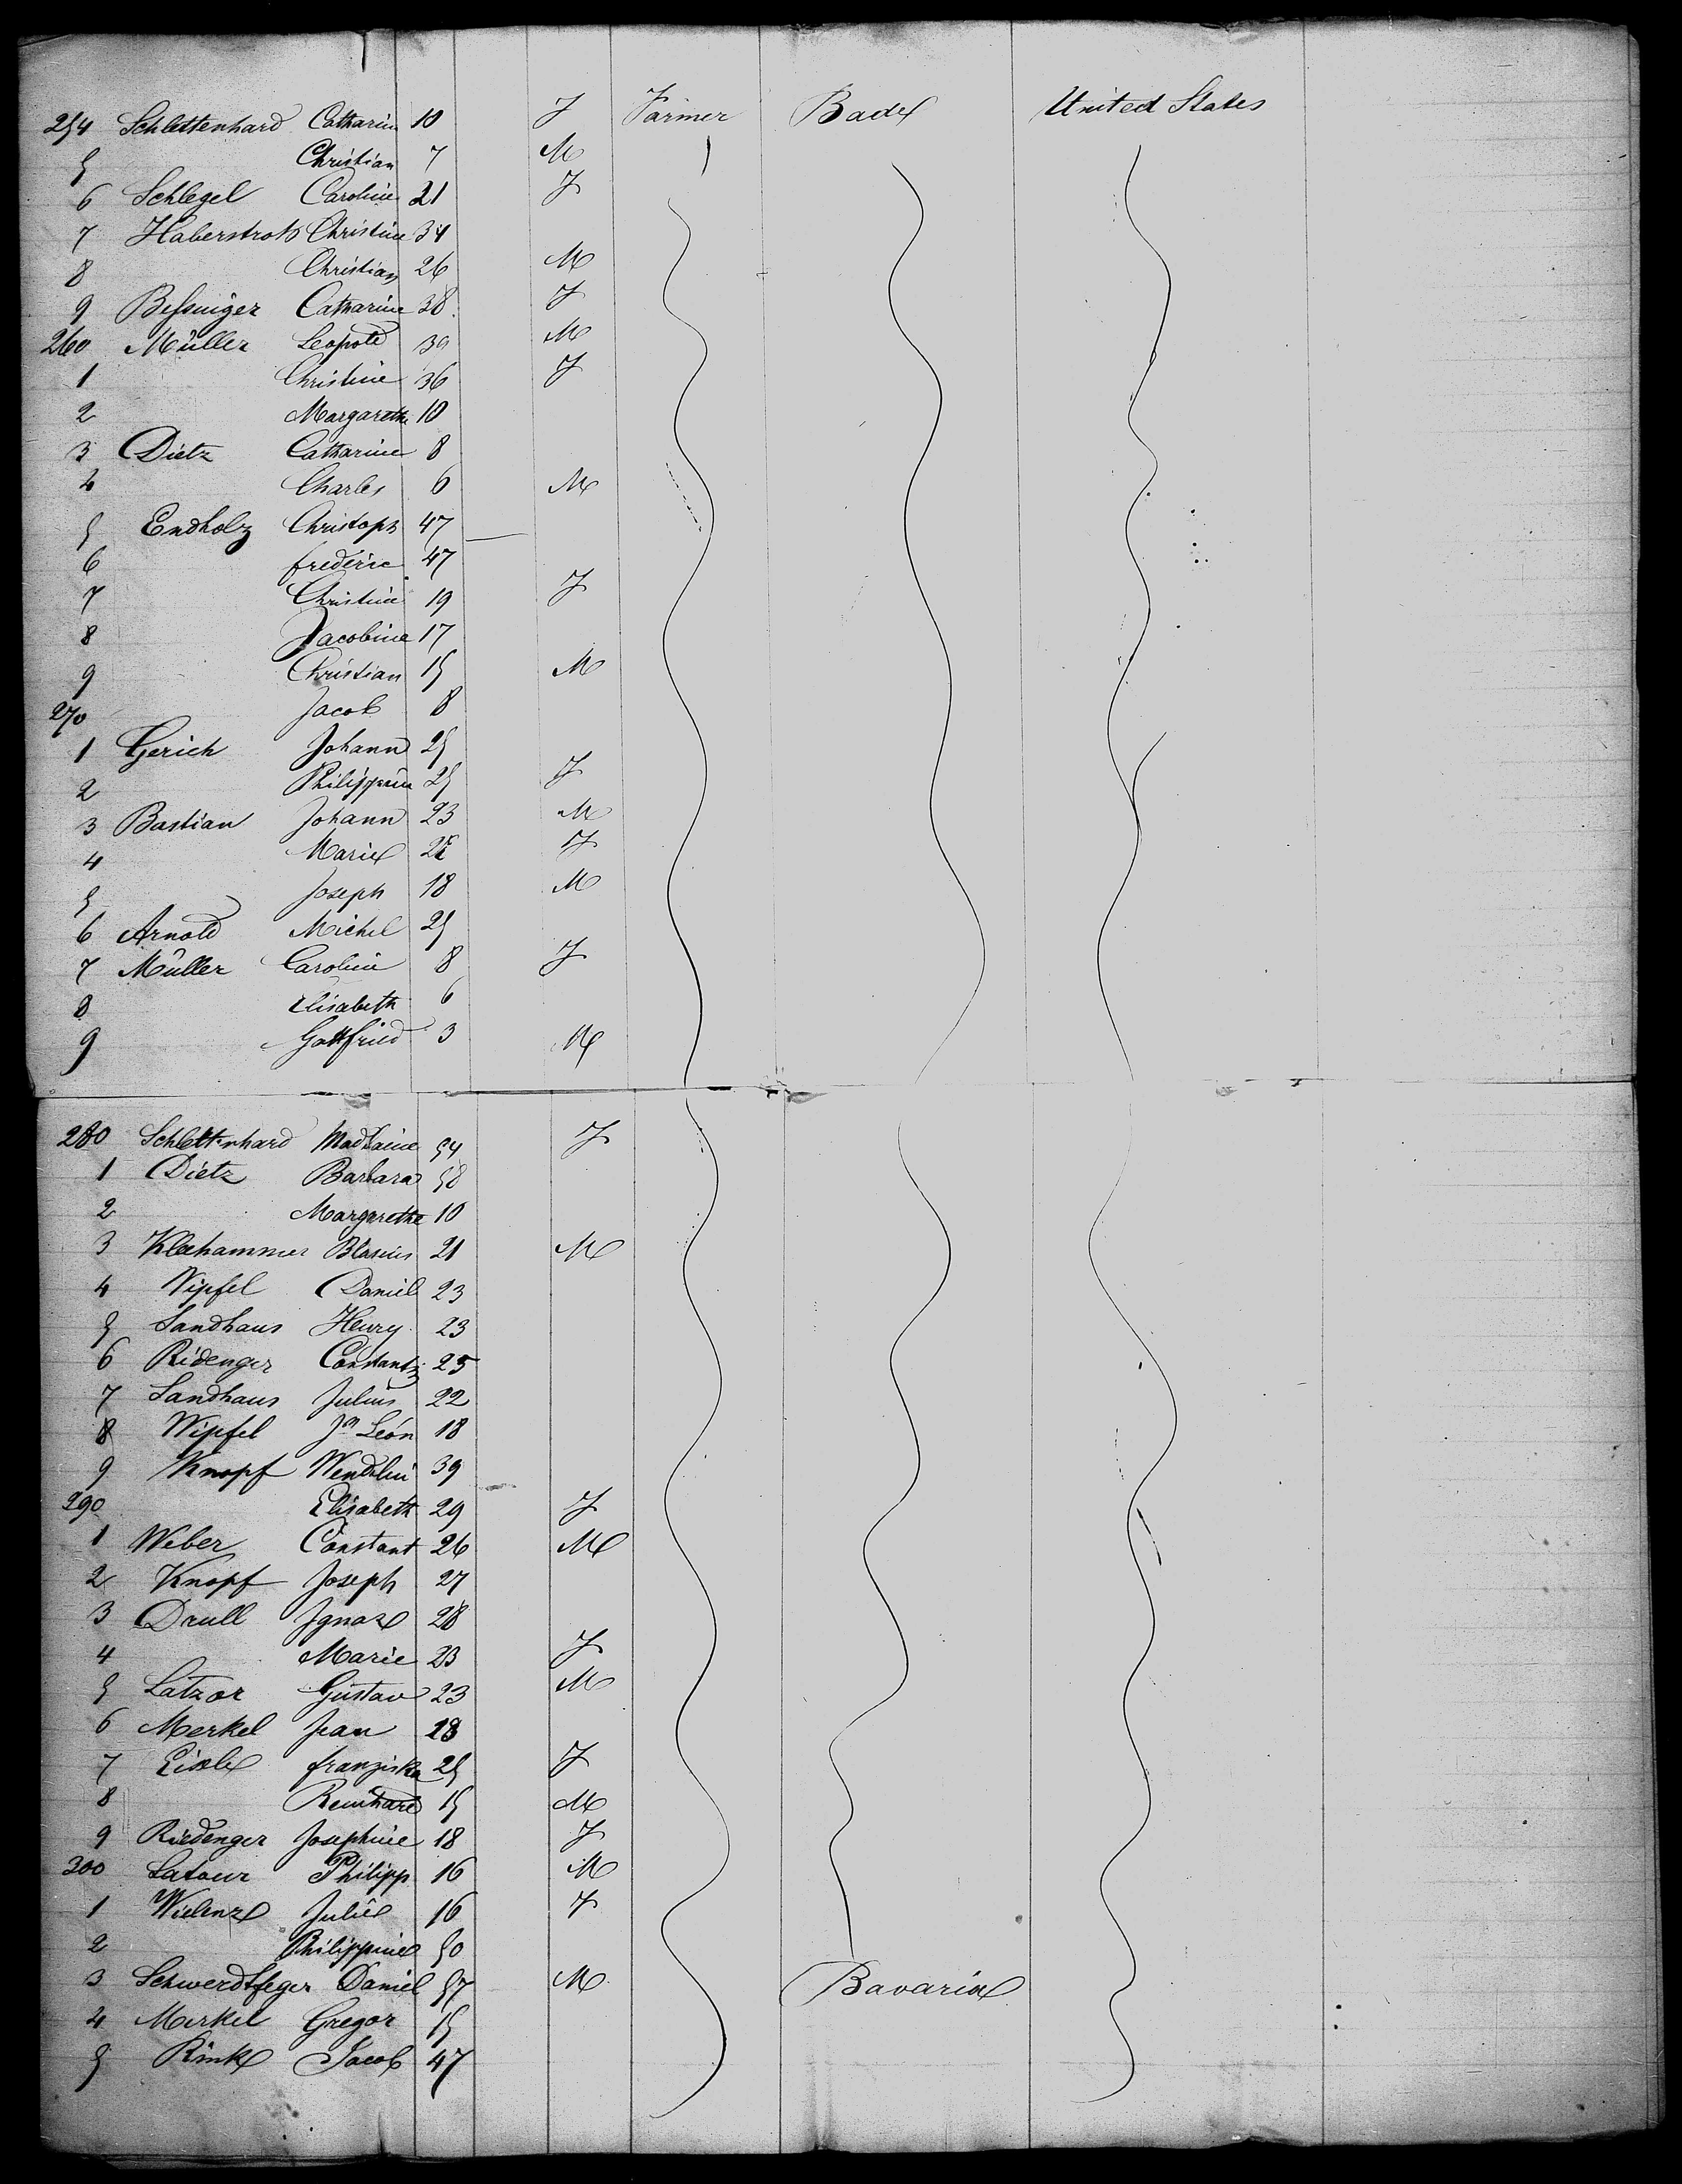 254 Schlettenhard Catharine 10 F Farmer Bade United States
5 Christian 7 M
6 Schlegel Caroline 21 F
7 Haberstroh Christine 34
8 Christian 26 M
9 Catharine 38 F
260 Müller Leopold 39 M
1 Christine 36 F
2 Margarethe 10
3 Dietz Catharine 8
4 Charles 6 M
5 Endholz Christoph 47
6 frederic 47
7 Christine 19 F
8 Jacobine 17
9 Christian 15 M
270 Jacob 8
1 Gerich Johann 25
2 Philippine 25 F
3 Bastian Johann 23 M
4 Marie F
5 Joseph 18 M
6 Arnold Michel 25
7 Müller Caroline 8 F
8 Elisabeth 6
9 Gottfried 3 M
280 Schlettenhard Madlaine 54 F
1 Dietz Barbara 58
2 Margarethe 10
3 Kleehammer Blasius 21 M
4 Wipfel Daniel 23
5 Sandhaus Henry 23
6 Ridenger Constantz 25
7 Sandhaus Julius 22
8 Wipfel Jn León 18
9 Knopf Wendelin 39
290 Elisabeth 29 F
1 Weber Constant 26 M
2 Knopf Joseph 27
3 Drull Ignaz 28
4 Marie 23 F
5 Latzar Gustav 23 M
6 Merkel Jean 18
7 Eisele franziska 25 F
8 Reinhard 15 M
9 Riedenger Josephine 18 F
300 Latour Philipp 16 M
1 Julie 16 F
2 Philippine 50
3 Schwerdtfeger Daniel 57 M Bavaria
4 Merkel Gregor 15
5 Rink Jacob 47